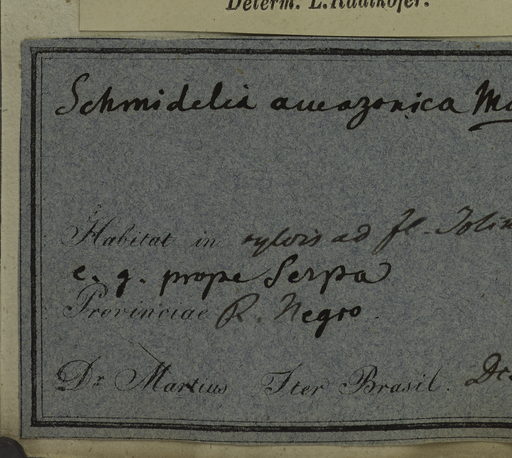 Determ. L. Radlkofer.
Schmidelia amazonica
Habitat in sylvis ad fl.
e. g. prope Serpa
Provinciae R. Negro.
Dr. Martius Iter Brasil.